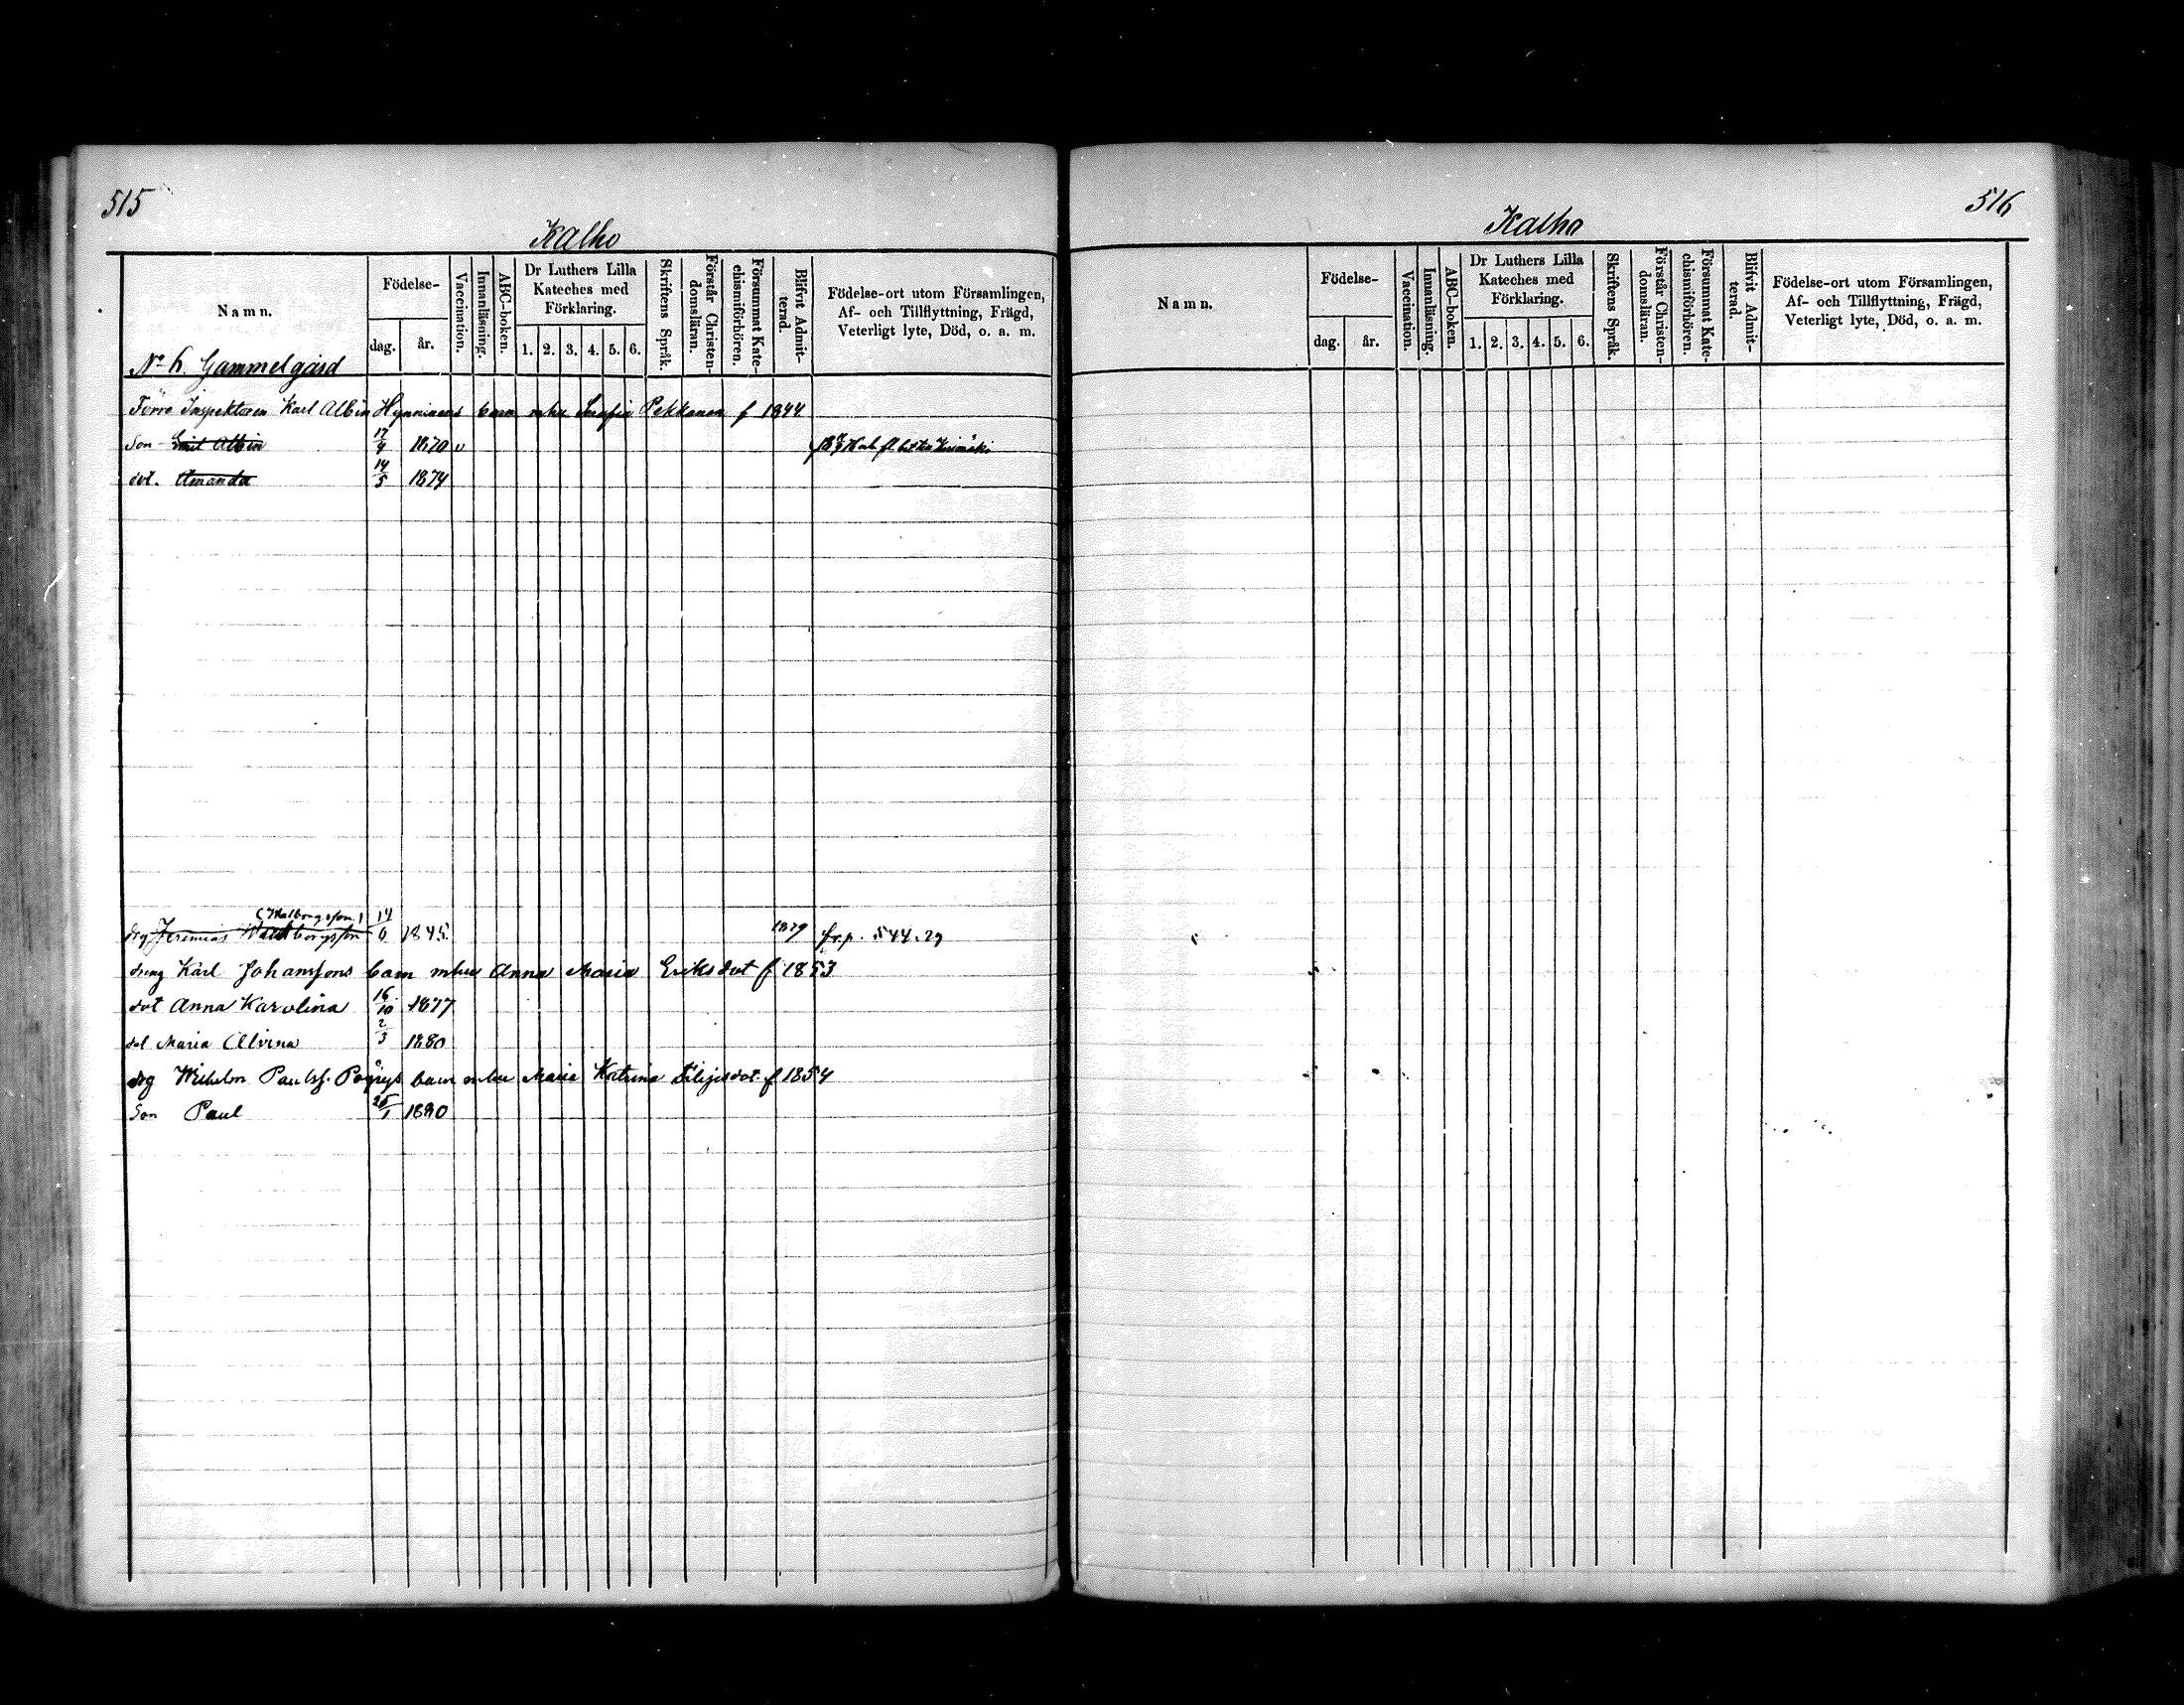 515
Kalho
Namn.
Födelse-
dag.
år.
Vaccination.
Innanläsning.
ABC-boken.
Dr Luthers Lilla
Kateches med
Förklaring.
1. 2. 3. 4. 5. 6.
Skriftens Språk.
Förstår Christen-
domsläran.
Försummat Kate-
chismiförhören.
Blifvit Admit-
terad.
Födelse-ort utom Församlingen,
Af- och Tillflyttning, Frägd,
Veterligt lyte, Död, o. a. m.
No 6. Gammelgård
Förre Inspektoren Karl Albin Hynninens barn mhu Serafia Pekkanen f 1844
Son Emil Albin 17/4 1870 v
dot. Amanda 14/5 1874
(Walborgsson)
drg Jeremias 14/6 1845 1879 fr. p. 544. 79
dräng Karl Johanssons barn mhu Anna Maria Eriksdot f 1853
dot Anna Karolina 16/10 1877
dot Maria Alvina 2/3 1880
drg Wilhelm Paulss. barn mhu Maria Katrina Filipsdot f 1854
Son Paul 25/1 1880
516
Kalho
Namn.
Födelse-
dag.
år.
Vaccination.
Innanläsning.
ABC-boken.
Dr Luthers Lilla
Kateches med
Förklaring.
1. 2. 3. 4. 5. 6.
Skriftens Språk.
Förstår Christen-
domsläran.
Försummat Kate-
chismiförhören.
Blifvit Admit-
terad.
Födelse-ort utom Församlingen,
Af- och Tillflyttning, Frägd,
Veterligt lyte, Död, o. a. m.